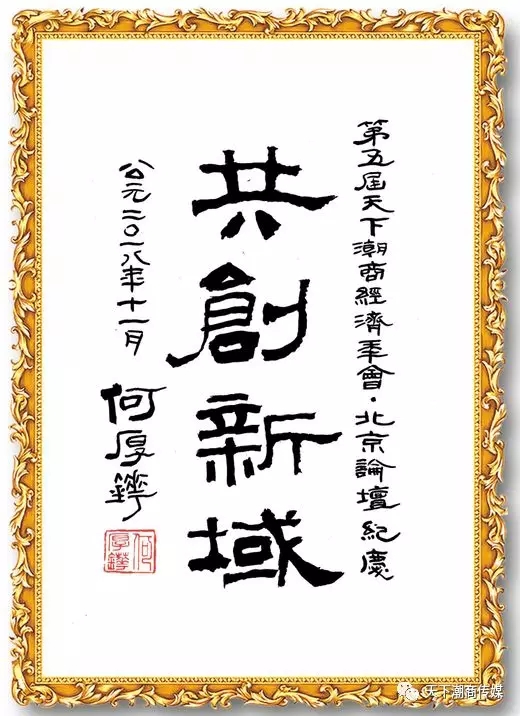 第五屆天下潮商經濟年會·北京論壇紀慶
共創新域
公元二〇一八年十一月
何厚鏵
何厚鏵
天下潮商传媒